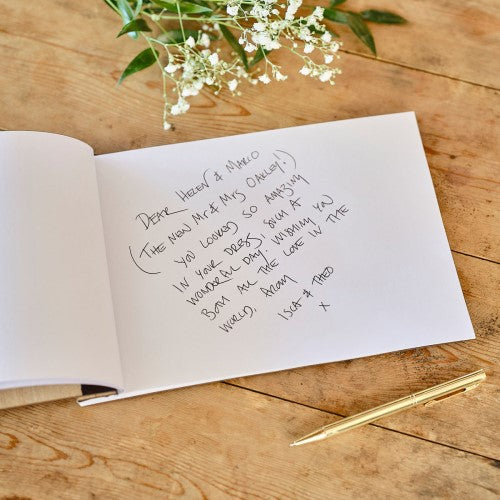 DEAR HELEN & MARLO
(THE NEW MR & MRS OAKLEY!)
YOU LOOKED SO AMAZING
IN YOUR DRESS, SUCH A
WONDERFUL DAY, WISHING YOU
BOTH ALL THE LOVE IN THE
WORLD, FROM
ISLA & THEO
X